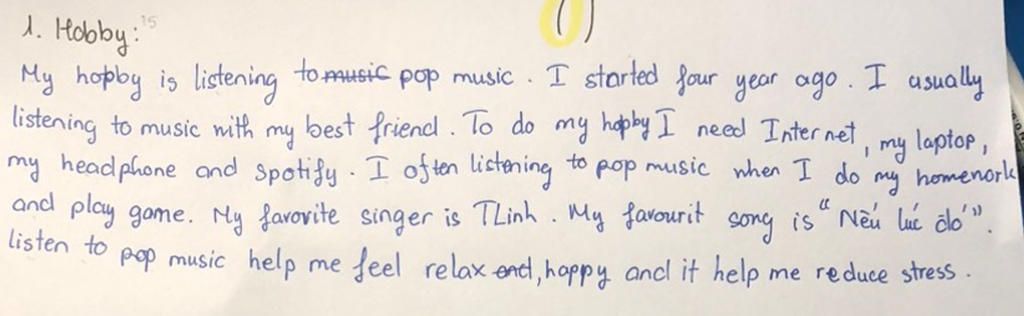 1. Hobby: 15
My hopby is listening to music pop music. I started four year ago. I usually
listening to music with my best friend. To do my hopby I need Internet, my laptop,
my headphone and spotify. I often listening to pop music when I do my homework
and play game. My favorite singer is TLinh. My favourit song is "Nếu lúc đó".
listen to pop music help me feel relax and, happy and it help me reduce stress.